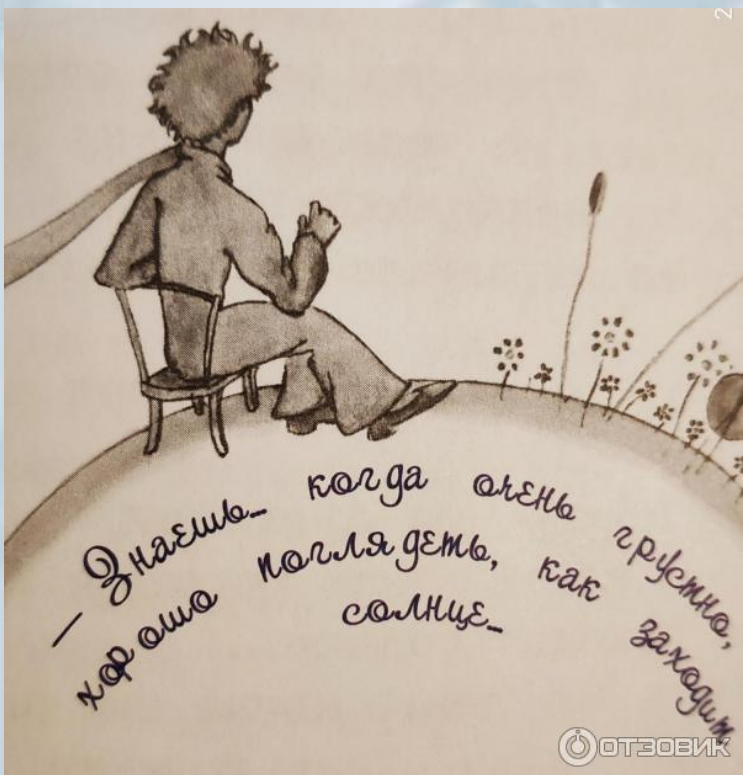 2
— Знаешь... когда очень грустно,
хорошо поглядеть, как заходит
солнце...
ОТЗОВИК